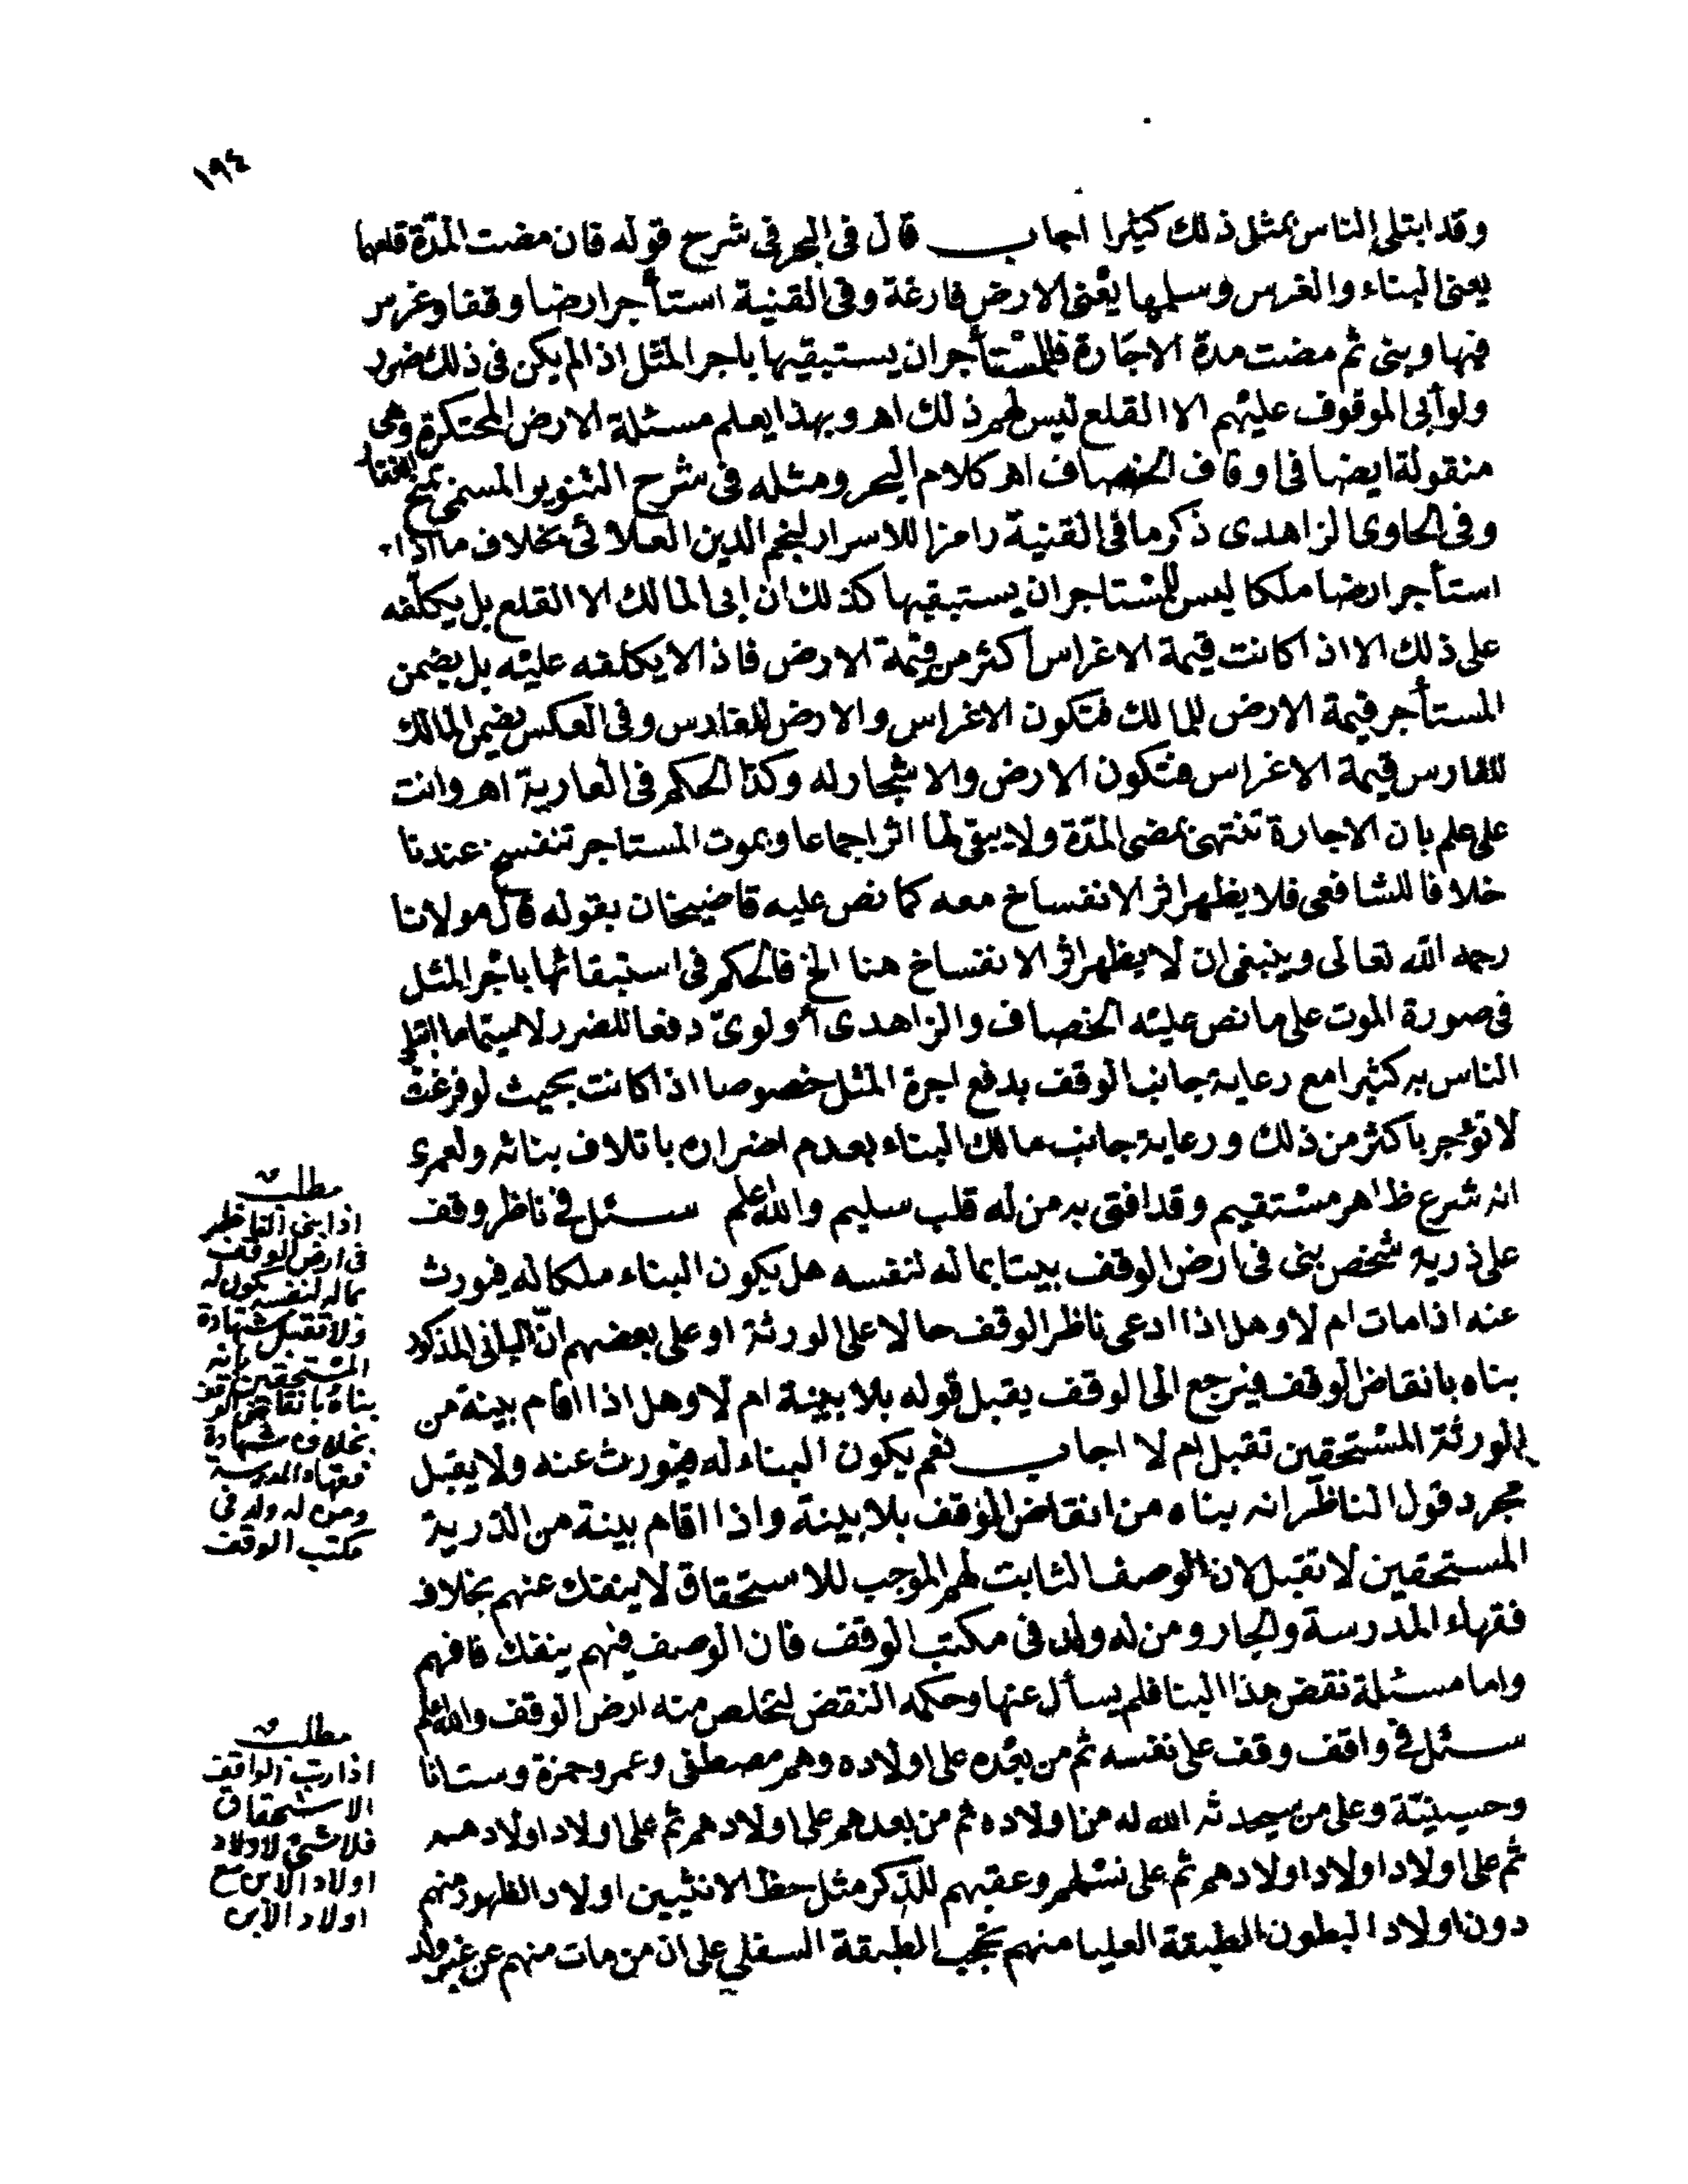 ١٩٤
وقد ابتلى الناس بمثل ذلك كثيرا اجاب قال فى البحر فى شرح قوله فان مضت المدّة قلعها
يعنى البناء والغرس وسلمها يعْنى الارض فارغة وفى القنية استأجر ارضا وقفا وغرس
فيها وبنى ثم مضت مدة الاجارة فللمستأجر ان يستبقيها باجر المثل اذا لم يكن فى ذلك ضرر
ولو أبى الموقوف عليهم الا القلع ليس لهم ذلك اهـ وبهذا يعلم مسئلة الارض المحتكرة وهى
منقولة ايضا فى اوقاف الخصاف اهـ كلام البحر ومثله فى شرح التنوير المسمى بمنح الغفار
وفى الحاوى الزاهدى ذكر ما فى القنية رامزا للاسرار لنجم الدين العلائى بخلاف ما اذا
استأجر ارضا ملكا ليس للمستاجر ان يستبقيها كذلك ان ابى المالك الا القلع بل يكلفه
على ذلك الا اذا كانت قيمة الاغراس أكثر من قيمة الارض فاذا لا يكلفه عليه بل يضمن
المستأجر قيمة الارض للمالك فتكون الاغراس والارض للغارس وفى العكس يضمن المالك
للغارس قيمة الاغراس فتكون الارض والاشجار له وكذا الحكم فى العارية اهـ وانت
على علم بان الاجارة تنتهى بمضى المدّة ولا يبقى لها اثر اجماعا وبموت المستاجر تنفسخ عندنا
خلافا للشافعى فلا يظهر اثر الانفساخ معه كما نص عليه قاضيخان بقوله قال مولانا
رحمه الله تعالى وينبغى ان لا يظهر اثر الانفساخ هنا الخ فالحكم فى استبقائها باجر المثل
فى صورة الموت على ما نص عليه الخصاف والزاهدى أولوىّ دفعا للضرر لا سيما ما ابتلى
الناس به كثيرا مع رعاية جانب الوقف بدفع اجرة المثل خصوصا اذا كانت بحيث لو فرغت
لا تؤجر باكثر من ذلك ورعاية جانب مالك البناء بعدم اضراره باتلاف بنائه ولعمرى
انه شرع ظاهر مستقيم وقد افتى به من له قلب سليم والله اعلم سئل فى ناظر وقف
على ذرية شخص بنى فى ارض الوقف بيتا بماله لنفسه هل يكون البناء ملكا له فيورث
عنه اذا مات ام لا وهل اذا ادعى ناظر الوقف حالا على الورثة او على بعضهم انّ البانى المذكور
بناه بانقاض الوقف فيرجع الى الوقف يقبل قوله بلا بينة ام لا وهل اذا اقام بينة من
الورثة المستحقين تقبل ام لا اجاب نعم يكون البناء له فيورث عنه ولا يقبل
مجرد قول الناظر انه بناه من انقاض الوقف بلا بينة واذا اقام بينة من الذرية
المستحقين لا تقبل لان الوصف الثابت لهم الموجب للاستحقاق لا ينفك عنهم بخلاف
فقهاء المدرسة والجار ومن له ولد فى مكتب الوقف فان الوصف فيهم ينفك فافهم
واما مسئلة نقض هذا البنا فلم يسأل عنها وحكمه النقض لتخلص منه ارض الوقف والله اعلم
سئل فى واقف وقف على نفسه ثم من بعده على اولاده وهم مصطفى وعمر وحمزة وستانا
وحسينيّة وعلى من سيحدثه الله له من اولاده ثم من بعدهم على اولادهم ثم على اولاد اولادهم
ثم على اولاد اولاد اولادهم ثم على نسلهم وعقبهم للذكر مثل حظ الانثيين اولاد الظهور منهم
دون اولاد البطون الطبقة العليا منهم تحجب الطبقة السفلى على ان من مات منهم عن غير ولد
مطلب
اذا بنى الناظر
فى ارض الوقف
بماله لنفسه يكون له
ولا تقبل شهادة
المستحقين بانه
بناه بانقاض الوقف
بخلاف شهادة
فقهاء المدرسة
ومن له ولد فى
مكتب الوقف
مطلب
اذا رتب الواقف
الاستحقاق
فلا شئ لاولاد
اولاد الابن مع
اولاد الابن